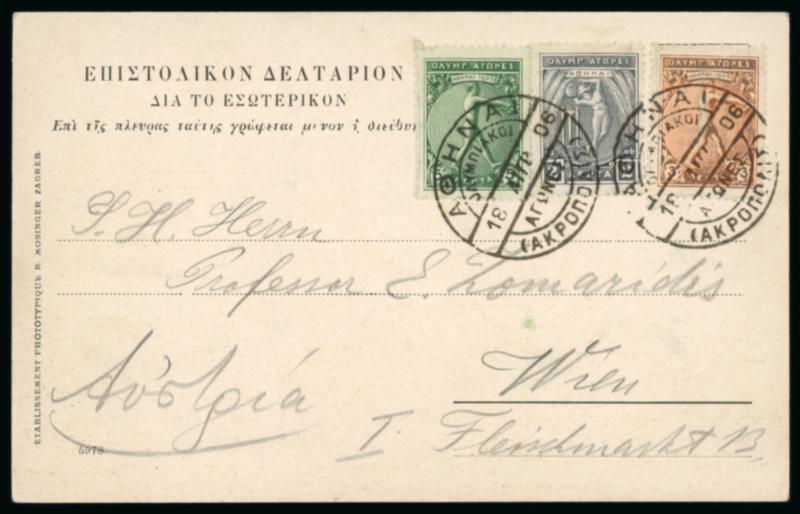 ΕΠΙΣΤΟΛΙΚΟΝ ΔΕΛΤΑΡΙΟΝ
ΔΙΑ ΤΟ ΕΣΩΤΕΡΙΚΟΝ
Ἐπὶ τῆς πλευρᾶς ταύτης γράφεται μόνον ἡ διεύθυ
ΟΛΥΜΠ. ΑΓΩΡΕΣ
ΟΛΥΜΠ. ΑΓΩΡΕΣ
ΑΘΗΝΑΙ
ΟΛΥΜΠ. ΑΓΩΡΕΣ
ΑΘΗΝΑΙ
ΟΛΥΜΠΙΑΚΟΙ
18 ΑΠΡ 06
ΑΓΩΝΕΣ
(ΑΚΡΟΠΟΛΙΣ)
ΑΘΗΝΑΙ
ΟΛΥΜΠΙΑΚΟΙ
18 ΑΠΡ 06
ΑΓΩΝΕΣ
(ΑΚΡΟΠΟΛΙΣ)
S. H. Herrn
Professor E. Zomaridis
Αὐστρία
Wien
I. Fleischmarkt 13.
ETABLISSEMENT PHOTOTYPIQUE R. MOSINGER, ZAGREB.
5978